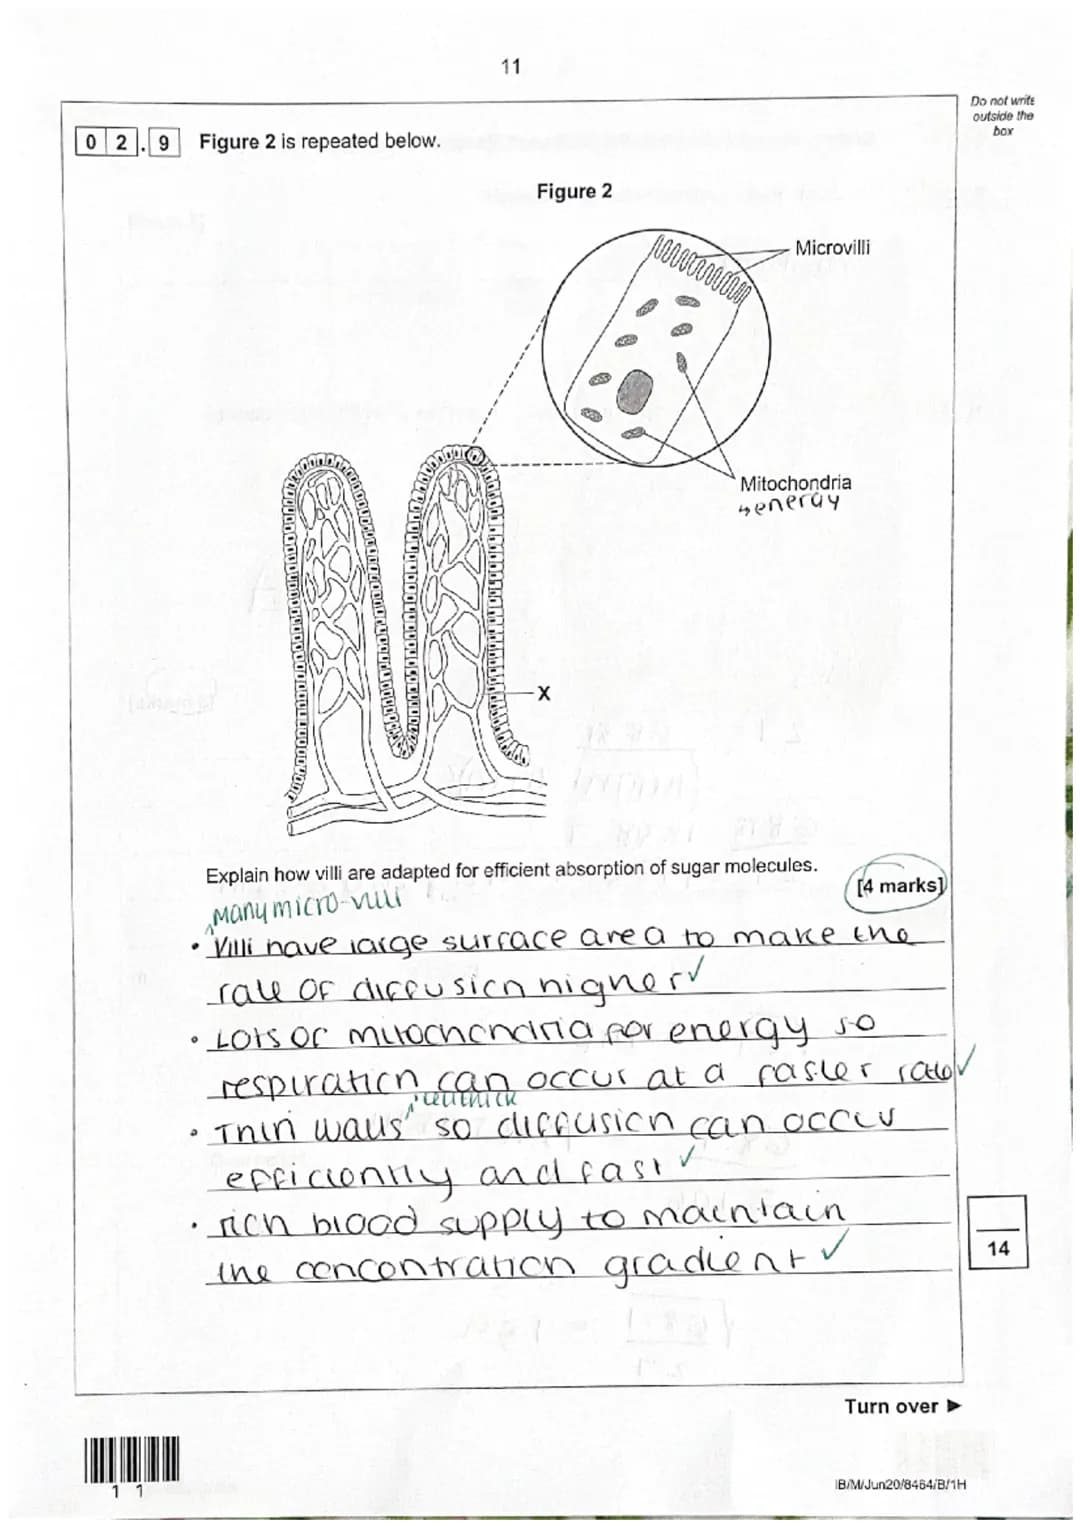 11
Do not write
outside the
box
0 2 . 9 Figure 2 is repeated below.
Figure 2
Microvilli
Mitochondria
↳energy
X
Explain how villi are adapted for efficient absorption of sugar molecules.
[4 marks]
Many micro-villi
• Villi have large surface area to make the
rate of diffusion higher ✓
• Lots of mitochondria for energy so
respiration can occur at a faster rate ✓
1 cell thick
• Thin walls so diffusion can occur
efficiently and fast ✓
• rich blood supply to maintain
the concentration gradient ✓
14
Turn over ►
1 1
IB/M/Jun20/8464/B/1H